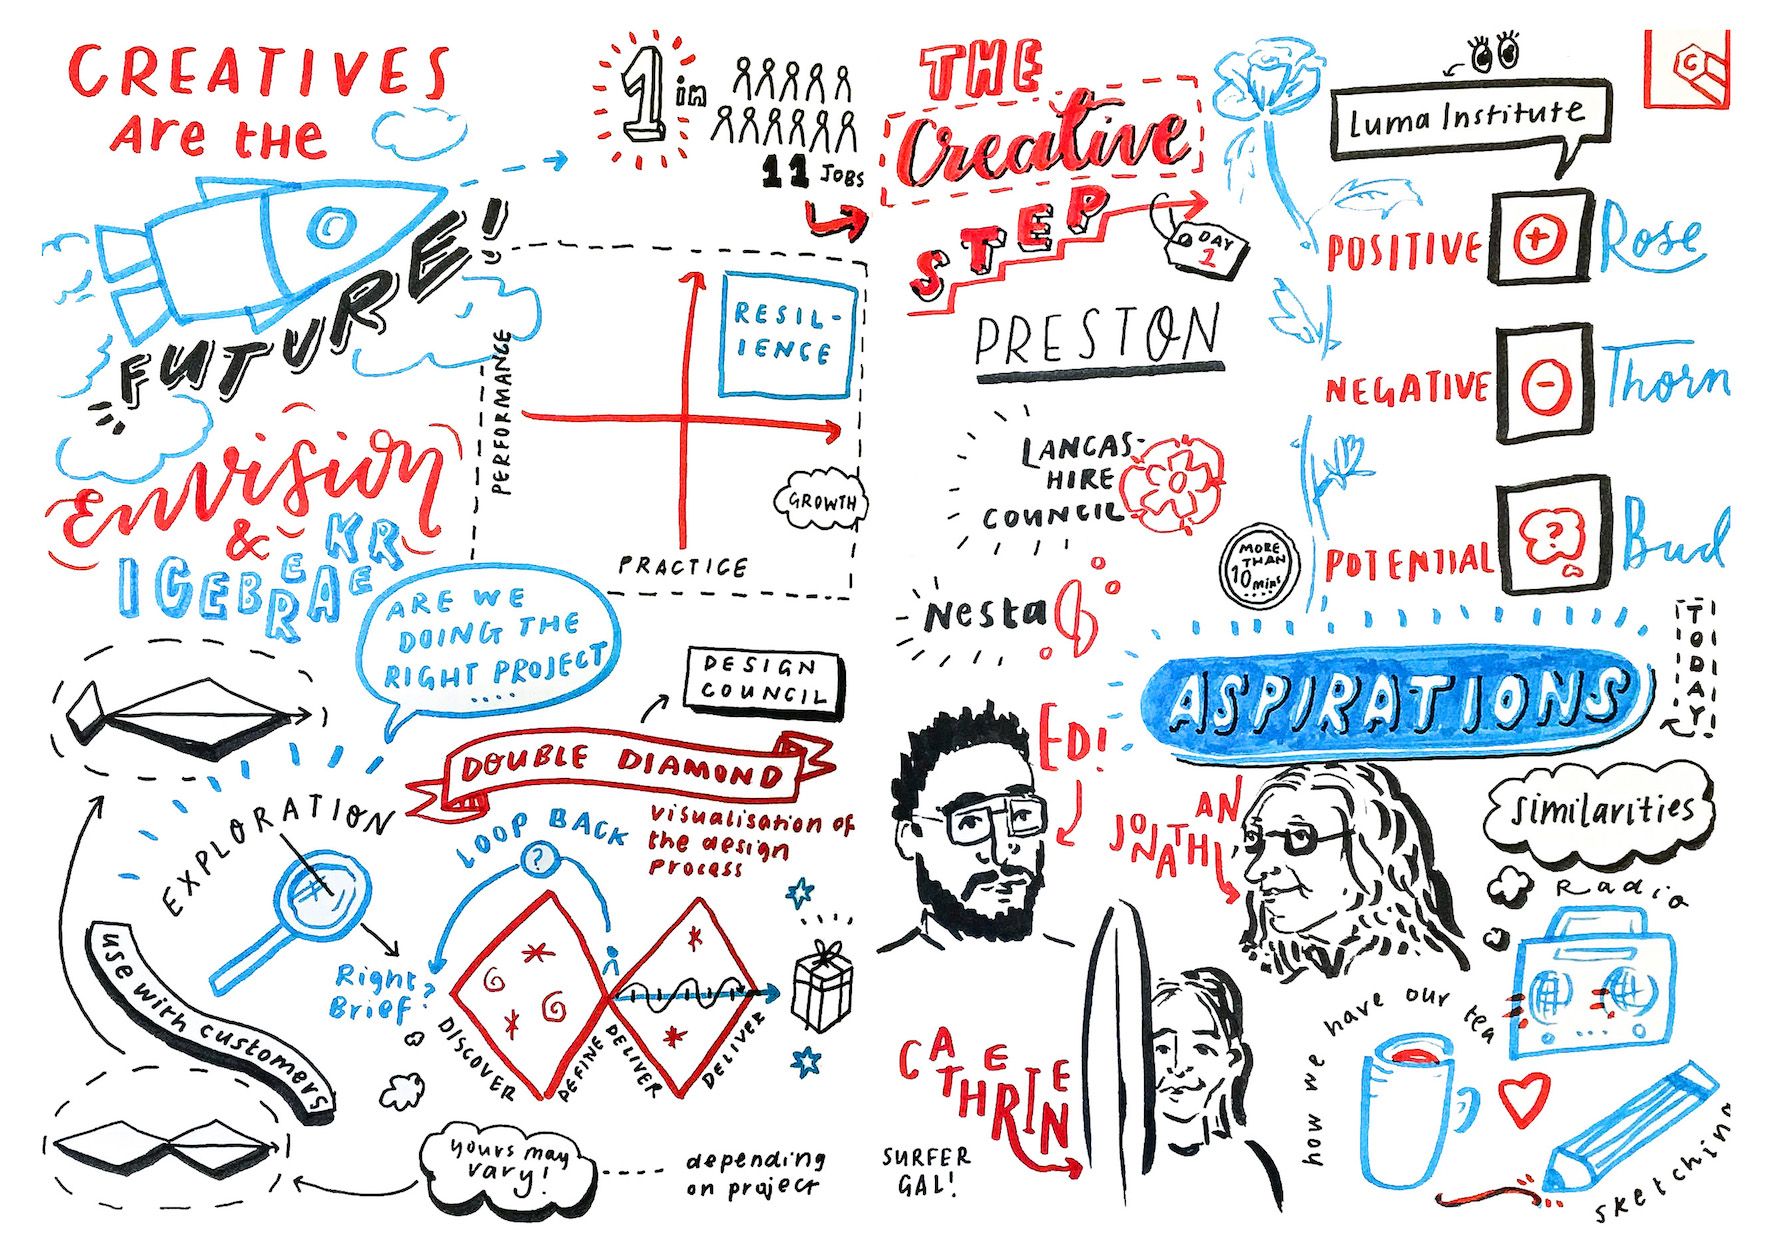 CREATIVES
Are the
FUTURE!
1 in
11 JOBS
Envision
&
ICEBREAKER
PERFORMANCE
RESIL-
IENCE
GROWTH
PRACTICE
ARE WE
DOING THE
RIGHT PROJECT
....
DESIGN
COUNCIL
DOUBLE DIAMOND
visualisation of
the design
process
LOOP BACK
?
EXPLORATION
Right
Brief?
use with customers
DISCOVER
DEFINE
DELIVER
DELIVER
yours may
vary!
depending
on project
THE
Creative
STEP
DAY
1
PRESTON
LANCAS-
HIRE
COUNCIL
Nesta
MORE
THAN
10 mins
Luma Institute
C
POSITIVE
+
Rose
NEGATIVE
-
Thorn
POTENTIAL
?
Bud
TODAY!
ASPIRATIONS
ED!
JONATHAN
CATHERINE
SURFER
GAL!
Similarities
Radio
how we have our tea
sketching